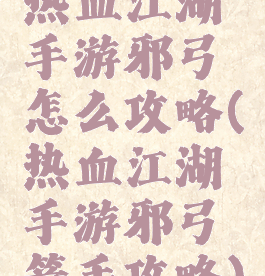 热血江湖
手游邪弓
怎么攻略(
热血江湖
手游邪弓
箭手攻略)